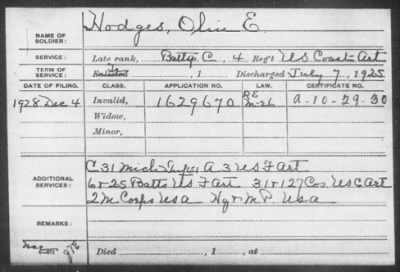 NAME OF SOLDIER: Hodges, Olin E
SERVICE: Late rank, Batty C, 4 Reg't US Coast Art
TERM OF SERVICE: Enlisted , 1 Discharged July 7, 1925
DATE OF FILING. CLASS. APPLICATION NO. LAW. CERTIFICATE NO.
1928 Dec 4 Invalid, 1629670 M-26 A-10-29-30
Widow,
Minor,
C 31 Mich Inf, A 3 US F Art
ADDITIONAL SERVICES: 6 & 25 Batts US F Art 31 & 127 Cos. US C Art
2 M Corps USA Hq & M P. USA
REMARKS:
Died , 1 , at